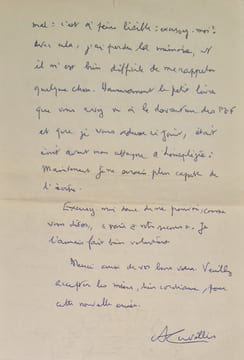 mal : c'est à peine lisible : excusez-moi !
Avec cela, j'ai perdu la mémoire, et
il m'est bien difficile de me rappeler
quelque chose. Heureusement le petit livre
que vous avez eu à la
et que je vous ci-joint, était
écrit avant mon attaque d'hémiplégie :
Maintenant je ne serais plus capable de
l'écrire.
Excusez moi donc de ne pouvoir, comme
vous dites, « ». Je
l'aurais fait bien volontiers
Merci aussi de vos bons vœux. Veuillez
accepter les miens, bien cordiaux, pour
cette nouvelle année.